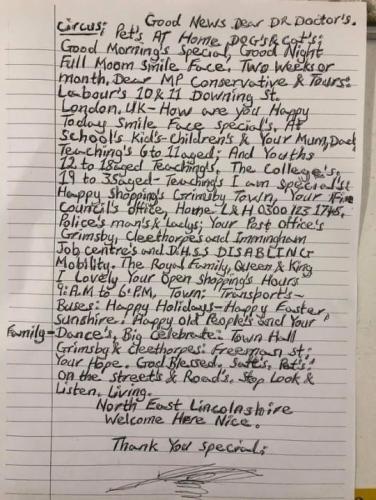 Circus; Good News Dear DR Doctor's.
Pet's AT Home DOG's & Cat's:
Good Morning's Special, Good Night
Full Moom Smile Face. Two Weeks or
month. Dear MP Conservative & Tours:
Labour's 10 & 11 Downing St.
London. UK - How are you Happy
Today Smile Face special's. At
School's Kid's-Children's & Your Mum, Dad,
Teaching's 6 to 11 aged; And Youths
12 to 18 aged Teaching's. The College's.
19 to 35 aged - Teaching's I am Special'st
Happy Shopping's Grimsby Town, Your Fire
Council's Office, Home. L & H 0300 123 1745,
Police's man's & ladys; Your Post Office's
Grimsby, Cleethorpes and Immingham
Job centre's and D.H.S.S DISABLING
Mobility. The Royal Family, Queen & King
I Lovely Your Open Shopping's Hours
9: A.M to 6: P.M, Town: Transport's -
Buses: Happy Holidays - Happy Easter,
Sunshire. Happy Old People's and Your
Family - Dance's, Big Celebrate: Town Hall
Grimsby & Cleethorpes: Freeman St;
Your Hope. God Blessed. Pet's:
on the street's & Road's, Stop Look &
Listen, Living.
North East Lincolnshire
Welcome Here Nice.
Thank You special;